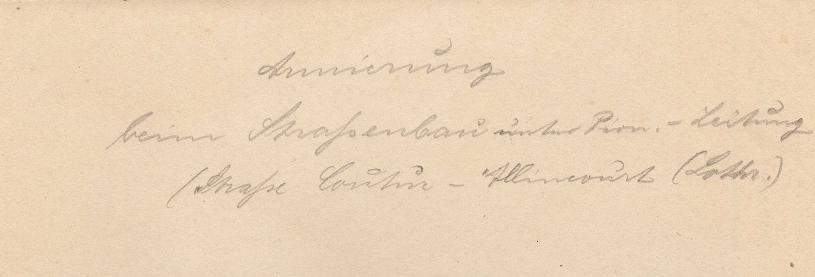 Armierung
beim Straßenbau unter Pion. - Leitung
(Straße Coutur - Allincourt (Lothr.)